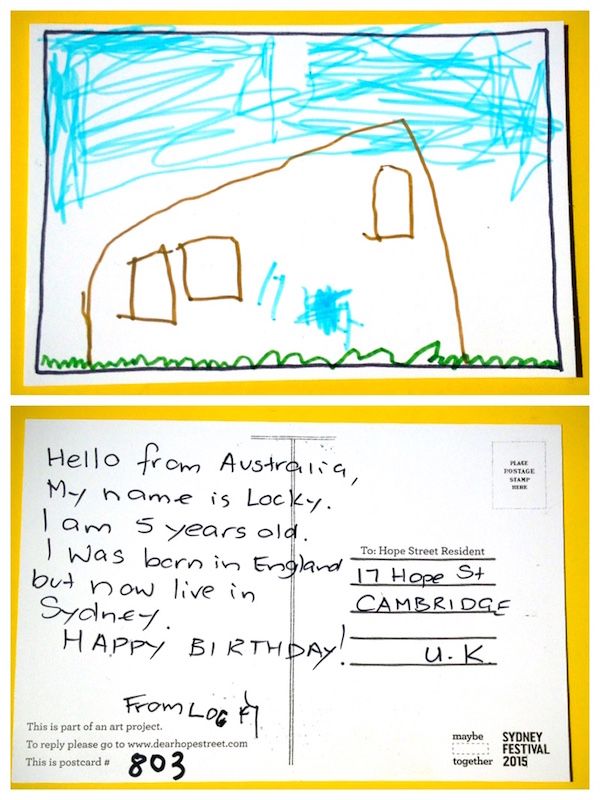 Hello from Australia,
My name is Locky.
I am 5 years old.
I was born in England
but now live in
Sydney.
HAPPY BIRTHDAY!
From LOCKY
This is part of an art project.
To reply please go to www.dearhopestreet.com
This is postcard # 803
PLACE
POSTAGE
STAMP
HERE
To: Hope Street Resident
17 Hope St
CAMBRIDGE
U.K.
maybe
together
SYDNEY
FESTIVAL
2015